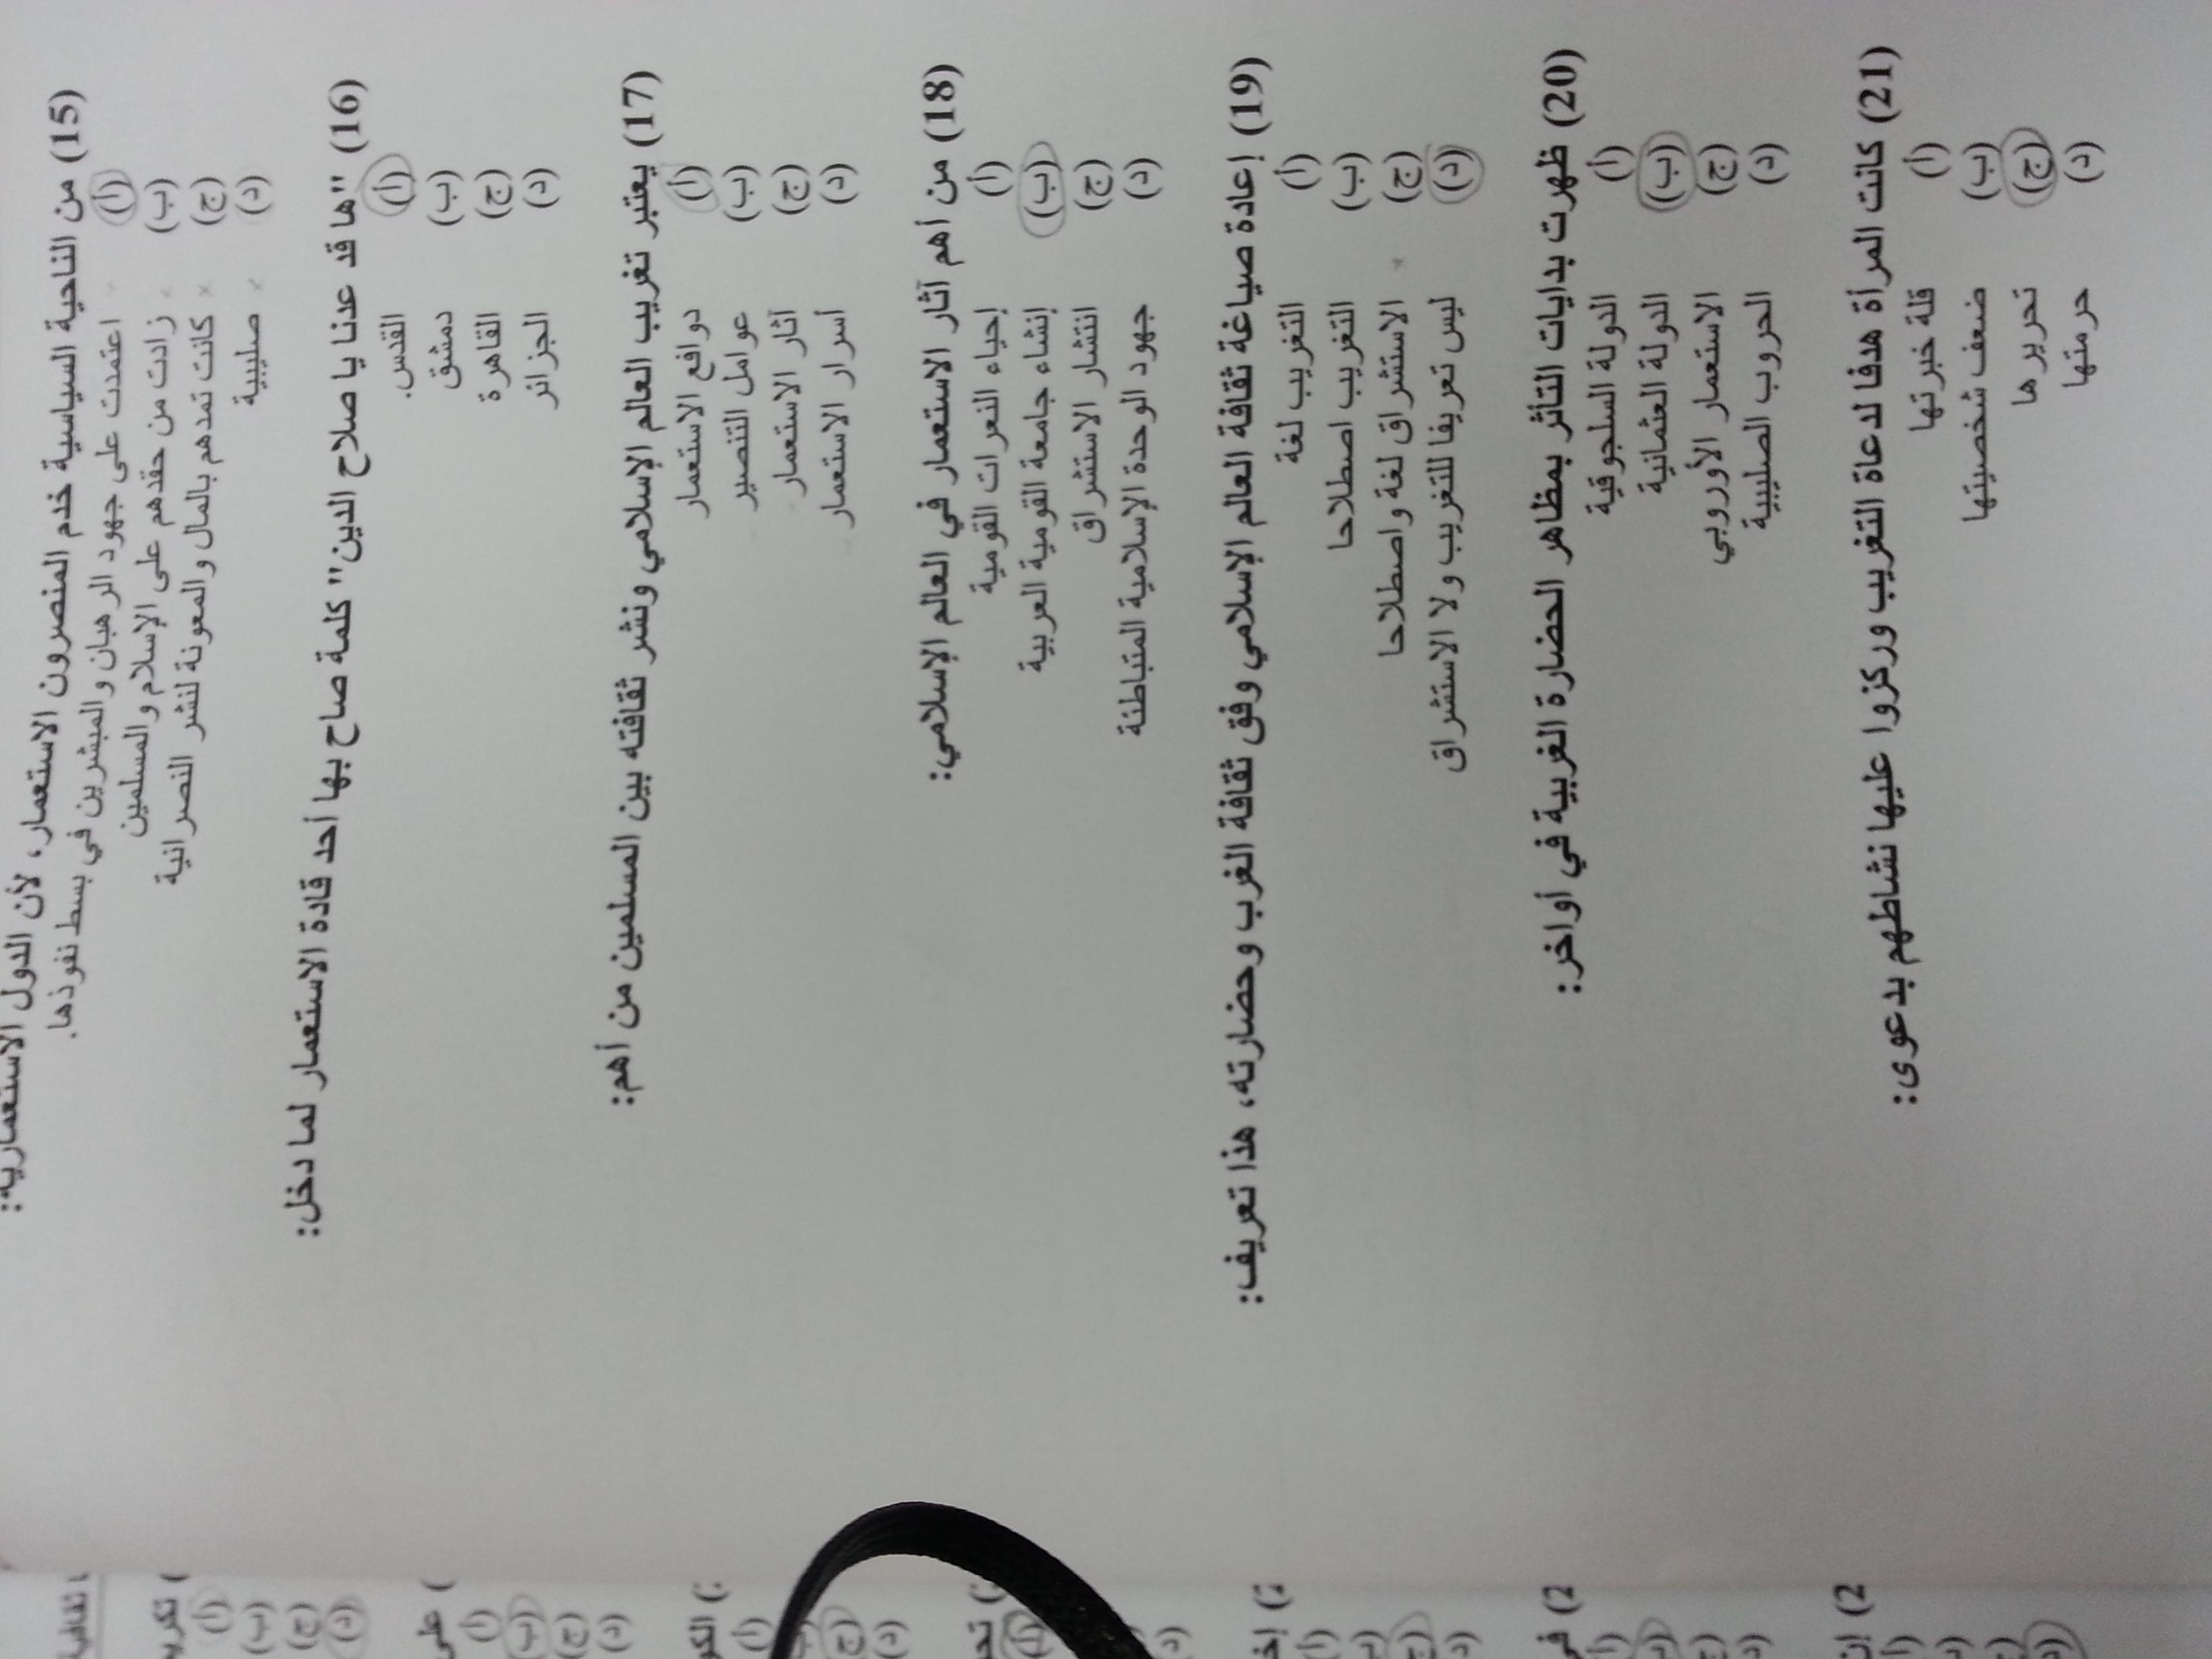 (15) من الناحية السياسية خدم المنصرون الاستعمار، لأن الدول الاستعمارية:
(أ) اعتمدت على جهود الرهبان والمبشرين في بسط نفوذها.
(ب) زادت من حقدهم على الإسلام والمسلمين
(ج) كانت تمدهم بالمال والمعونة لنشر النصرانية
(د) صليبية
(16) "ها قد عدنا يا صلاح الدين" كلمة صاح بها أحد قادة الاستعمار لما دخل:
(أ) القدس.
(ب) دمشق
(ج) القاهرة
(د) الجزائر
(17) يعتبر تغريب العالم الإسلامي ونشر ثقافته بين المسلمين من أهم:
(أ) دوافع الاستعمار
(ب) عوامل التنصير
(ج) آثار الاستعمار
(د) أسرار الاستعمار
(18) من أهم آثار الاستعمار في العالم الإسلامي:
(أ) إحياء النعرات القومية
(ب) إنشاء جامعة القومية العربية
(ج) انتشار الاستشراق
(د) جهود الوحدة الإسلامية المتباطئة
(19) إعادة صياغة ثقافة العالم الإسلامي وفق ثقافة الغرب وحضارته، هذا تعريف:
(أ) التغريب لغة
(ب) التغريب اصطلاحا
(ج) الاستشراق لغة واصطلاحا
(د) ليس تعريفا للتغريب ولا الاستشراق
(20) ظهرت بدايات التأثر بمظاهر الحضارة الغربية في أواخر:
(أ) الدولة السلجوقية
(ب) الدولة العثمانية
(ج) الاستعمار الأوروبي
(د) الحروب الصليبية
(21) كانت المرأة هدفا لدعاة التغريب وركزوا عليها نشاطهم بدعوى:
(أ) قلة خبرتها
(ب) ضعف شخصيتها
(ج) تحريرها
(د) حرمتها